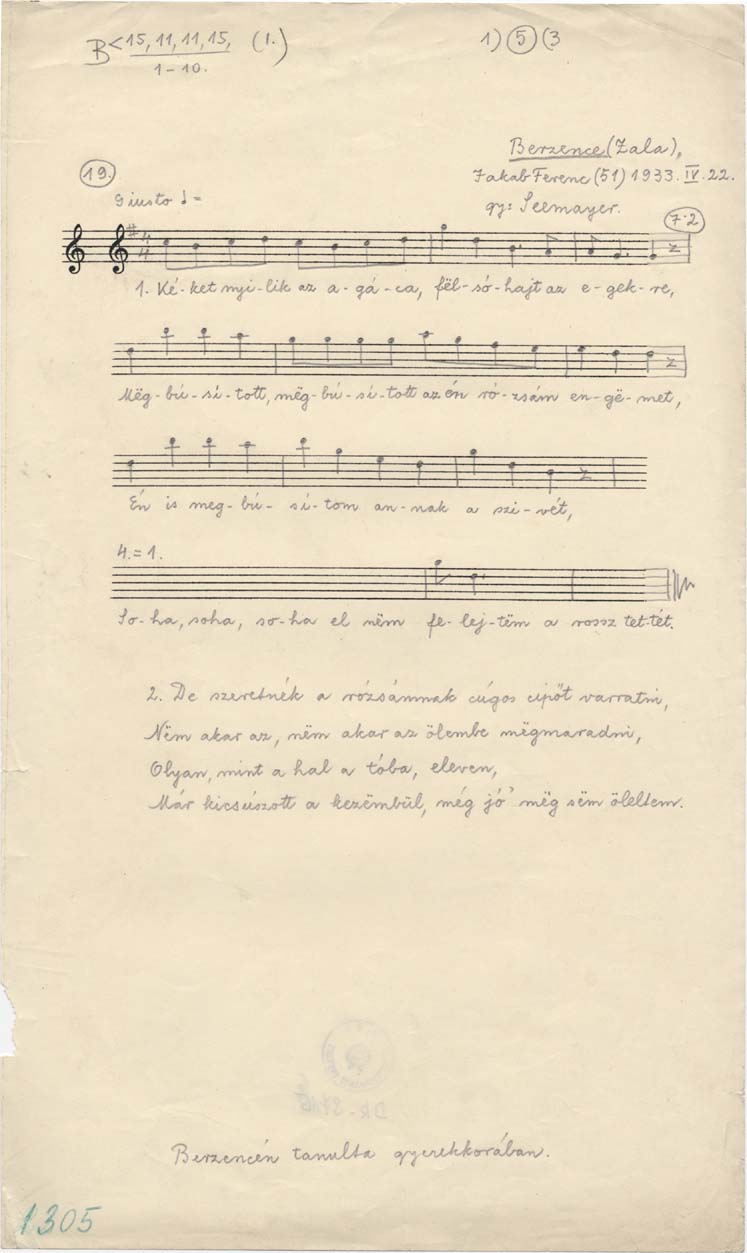 B< 15, 11, 11, 15, (1.)
1-10.
1) 5 (3
Berzence (Zala),
19.
Jakab Ferenc (51) 1933. IV. 22.
Giusto ♩=
gy: Seemayer.
7·2
4
4
z
1. Ké-ket nyi-lik az a-gá-ca, fël-só-hajt az e-gek-re,
z
Mëg-bú-sí-tott, mëg-bú-sí-tott az én ró-zsám en-gë-met,
z
Én is meg-bú-sí-tom an-nak a szi-vét,
4.=1.
So-ha, soha, so-ha el nëm fe-lej-tëm a rossz tet-tét.
2. De szeretnék a rózsámnak cúgos cipőt varratni,
Nëm akar az, nëm akar az ölembe mëgmaradni,
Olyan, mint a hal a tóba, eleven,
Már kicsúszott a kezëmbül, még jó' mëg sëm öleltem.
Berzencén tanulta gyerekkorában.
1305